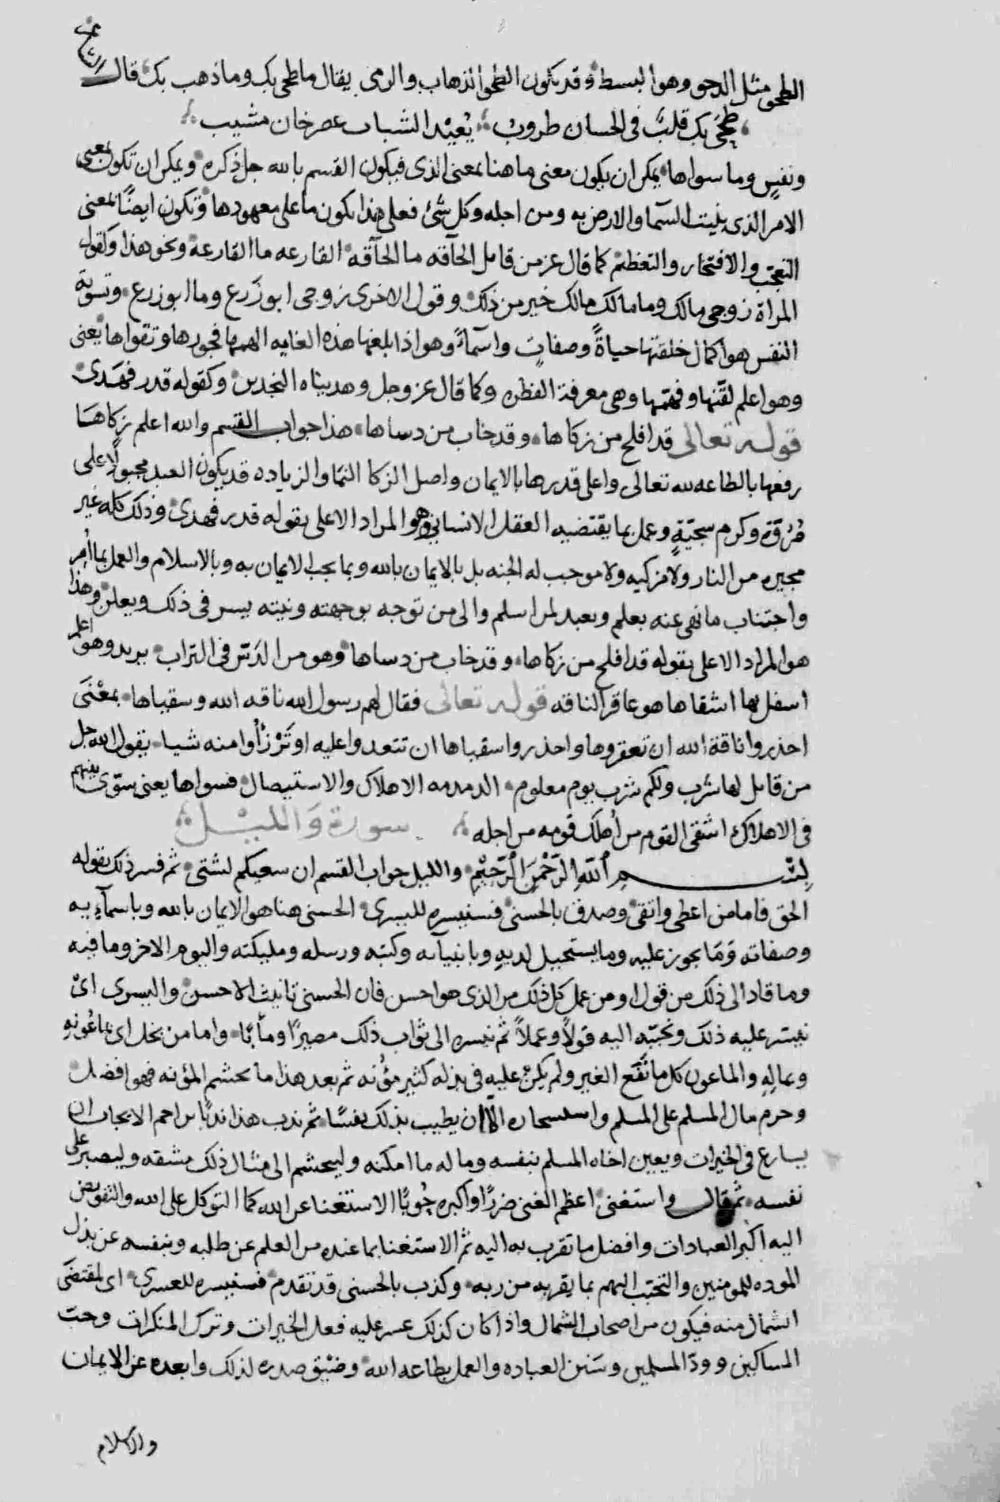 الطحو مثل الدحو وهو البسط وقد يكون الطحو الذهاب والرمى يقال ما طحى بك وما ذهب بك قال
طحى بك قلب فى الحسان طروب بعيد الشباب عصر حان مشيب
ونفس وما سواها يمكن ان يكون معنى ما هنا بمعنى الذى فيكون القسم بالله جل ذكره ويمكن ان تكون بمعنى
الامر الذى بنيت السما والارض به ومن اجله وكل شئ فعلى هذا تكون ما على معهودها وتكون ايضًا بمعنى
التعجب والافتخار والتعظيم كما قال عز من قايل الحآقه ما الحآقه القارعه ما القارعة ونحو هذا وكقول
المراة زوجى مالك وما مالك مالك خير من ذلك وقول الاخرى زوجى ابو زرع وما ابو زرع وتسوية
النفس هو اكمال خلقتها حياةً وصفاتٍ واسمآءً وهو اذا بلغها هذه الغايه الهمها فجورها وتقواها يعنى
وهو اعلم لقنها وفهمها وهى معرفة الفطره وكما قال عز وجل وهديناه النجدين وكقوله قدر فهدى
قوله تعالى قد افلح من زكاها وقد خاب من دساها هذا جواب القسم والله اعلم زكاها
رفعها بالطاعه لله تعالى واعلى قدرها بالايمان واصل الزكا النما والزياده قد يكون العبد مجبولًا على
مروة وكرم سجيةٍ وعمل بما يقتضيه العقل الانسانى وهو المراد الاعلى بقوله قدر فهدى وذلك كله غير
مجيره من النار ولا مزكيه ولا موجب له الجنه بل بالايمان بالله وبما يجب الايمان به وبالاسلام والعمل بما امر
واجتناب ما نهى عنه يعلم ويعبد لمن اسلم والى من توجه بوجهته ونيته يسر فى ذلك ويعلن وهذا
هو المراد الاعلى بقوله قد افلح من زكاها وقد خاب من دساها وهو من الدس فى التراب يريد وهو اعلم
اسفل بها اشقاها هو عاقر الناقه قوله تعالى فقال لهم رسول الله ناقه الله وسقياها بمعنى
احذروا ناقة الله ان تعقروها واحذروا سقياها ان تتعدوا عليه او ترزأوا منه شيا يقول الله جل
من قايل لها شرب ولكم شرب يوم معلوم الدمدمه الاهلاك والاستيصال فسواها يعنى سوّى بينهم
فى الاهلاك اشقى القوم من اهلك قومه من اجله سورة والليل
بسم الله الرحمن الرحيم والليل جواب القسم ان سعيكم لشتى ثم فسر ذلك بقوله
الحق فاما من اعطى واتقى وصدق بالحسنى فسنيسره لليسرى الحسنى هنا هو الايمان بالله وباسمآيه
وصفاته وما يجوز عليه وما يستحيل لديه وبانبيآئه وكتبه ورسله ومليكته واليوم الاخر وما فيه
وما قاد الى ذلك من قول او من عمل كل ذلك من الذى هو احسن فان الحسنى تانيث الاحسن واليسرى اى
نيسر عليه ذلك ونحببه اليه قولًا وعملًا ثم نيسره الى ثواب ذلك مصيرًا ومآبًا واما من بخل اى بماعونه
وماله والماعون كل ما نفع الغير ولم يكن عليه فى بذله كثير مؤنه ثم بعد هذا ما تجشم المؤنه فهو افضل
وحرم مال المسلم على المسلم الا ان يطيب بذلك نفسًا ثم ندب هذا ندبًا
يسارع فى الخيرات ويعين اخاه المسلم بنفسه وماله ما امكنه وليتجشم الى مثال ذلك مشقه وليصبر على
نفسه ثم قال واستغنى اعظم الغنى ضررًا واكبره حوبًا الاستغنا عن الله كما التوكل على الله والتفويض
اليه اكبر العبادات وافضل ما تقرب به اليه ثم الاستغنا بما عنده من العلم عن طلبه وبنفسه عن بذل
الموده للمومنين والتحبب اليهم بما يقربه من ربه وكذب بالحسنى قد تقدم فسنيسره للعسرى اى لمقتضى
الشمال منه فيكون من اصحاب الشمال واذا كان كذلك عسر عليه فعل الخيرات وترك المنكرات وحب
المساكين وودّ المسلمين وسنن العباده والعمل بطاعه الله وضيق صدره لذلك وابعده عن الايمان
والاسلام